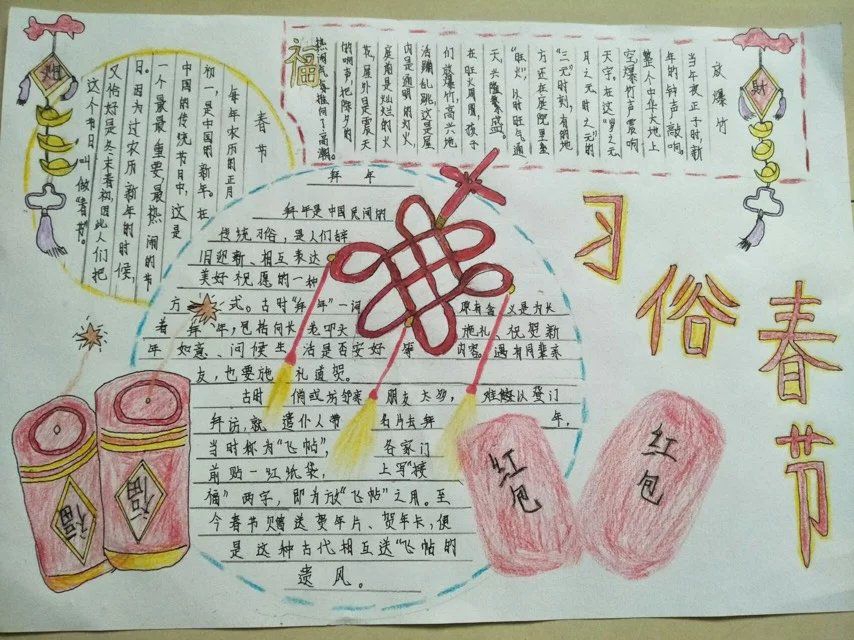 春节
习俗
放爆竹
当年夜正子时,新
年的钟声敲响。
整个中华大地上
空,爆竹声震响
天宇。在这"岁之元
月之元、时之元"的
"三元"时刻,有的地
方还在庭院里垒
"旺火",以时旺气通
天,兴隆繁盛。
在旺火周围,孩子
们放爆竹,高兴地
活蹦乱跳,这是屋
内是通明的灯火
庭前是灿烂的火
花,屋外是震天
的响声,把除夕的
热闹气氛推向了高潮。
福
财
财
春节
每年农历的正月
初一,是中国的新年。在
中国的传统节日中,这是
一个最重要、最热闹的节
日。因为过农历新年的时候,
又恰好是冬末春初,因此人们把
这个节日叫做"春节"。
拜年
拜年是中国民间的
传统习俗,是人们辞
旧迎新、相互表达
美好祝愿的一种
方式。古时"拜年"一词原有含义是为长
者拜年,包括向长 叩头施礼、祝贺新
年如意、问候生活是否安好等内容。遇有同辈亲
友,也要施礼道贺。
古时倘或坊邻亲朋友太多,难以登门
拜访,就遣仆人带名片去拜年,
当时称为"飞帖",各家门
前贴一红纸袋,上写"接
福"两字,即为放"飞帖"之用。至
今春节赠送贺年片、贺年卡,便
是这种古代相互送"飞帖的
遗风。
福
福
红包
红包